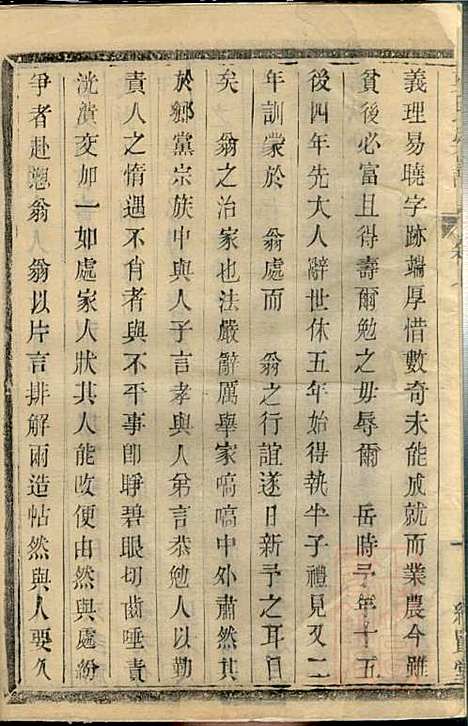 義理易曉字跡端厚惜數奇未能成就而業農今雖
貧後必富且得壽爾勉之毋辱爾　岳時予年十五
後四年先大人辭世休五年始得執半子禮見又二
年訓蒙於　翁處而　翁之行誼遂日新予之耳目
矣　翁之治家也法嚴辭厲舉家嗃嗃中外肅然其
於鄉黨宗族中與人子言孝與人弟言恭勉人以勤
責人之惰遇不肖者與不平事即睜碧眼切齒唾責
洸潰交加一如處家人狀其人能改便由然與處紛
爭者赴愬翁人翁以片言排解兩造帖然與人要久